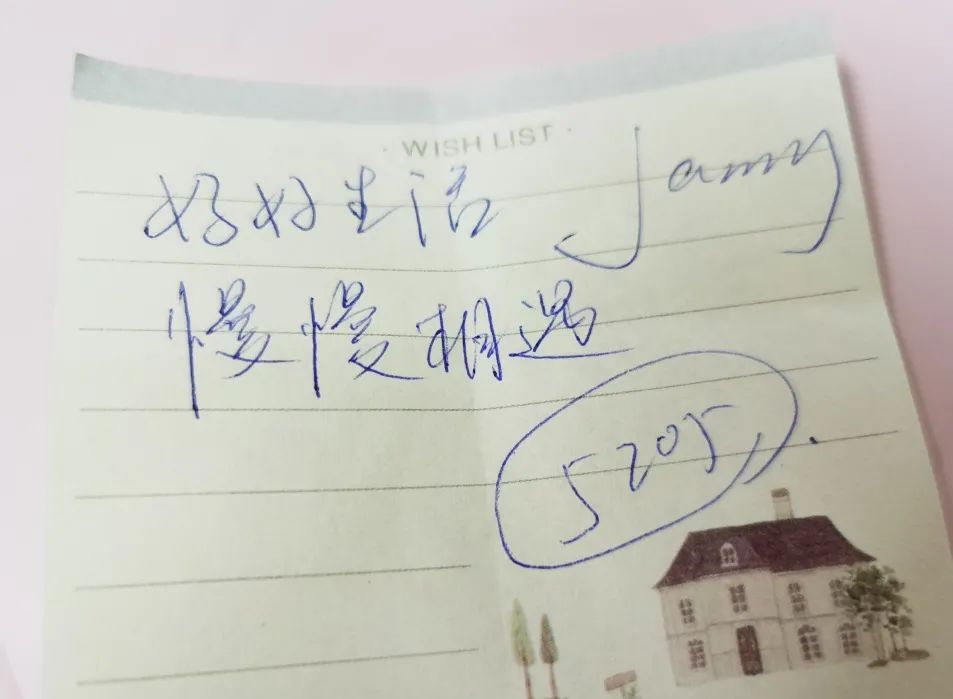 · WISH LIST ·
好好生活 Jammy
慢慢相遇
5205